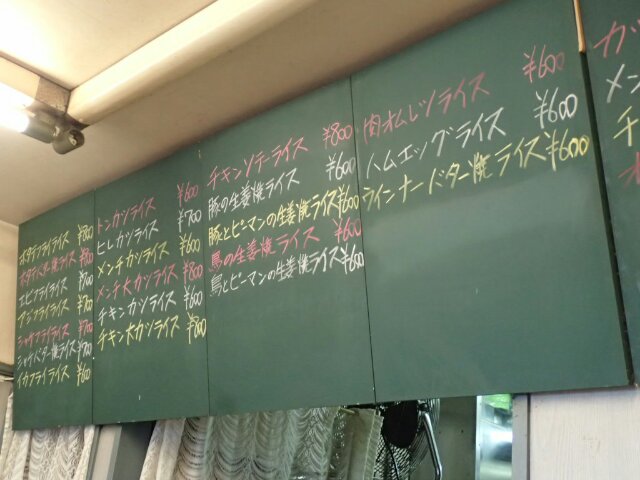 ホタテフライライス ¥800
ホタテバター焼ライス ¥800
エビフライライス ¥700
アジフライライス ¥700
シャケフライライス ¥700
シャケバター焼ライス ¥700
イカフライライス ¥600
トンカツライス ¥600
ヒレカツライス ¥700
メンチカツライス ¥600
メンチ大カツライス ¥800
チキンカツライス ¥600
チキン大カツライス ¥800
チキンソテーライス ¥800
豚の生姜焼ライス ¥600
豚とピーマンの生姜焼ライス ¥600
鳥の生姜焼ライス ¥600
鳥とピーマンの生姜焼ライス ¥600
肉オムレツライス ¥600
ハムエッグライス ¥600
ウインナーバター焼ライス ¥600
カツ
メン
チ